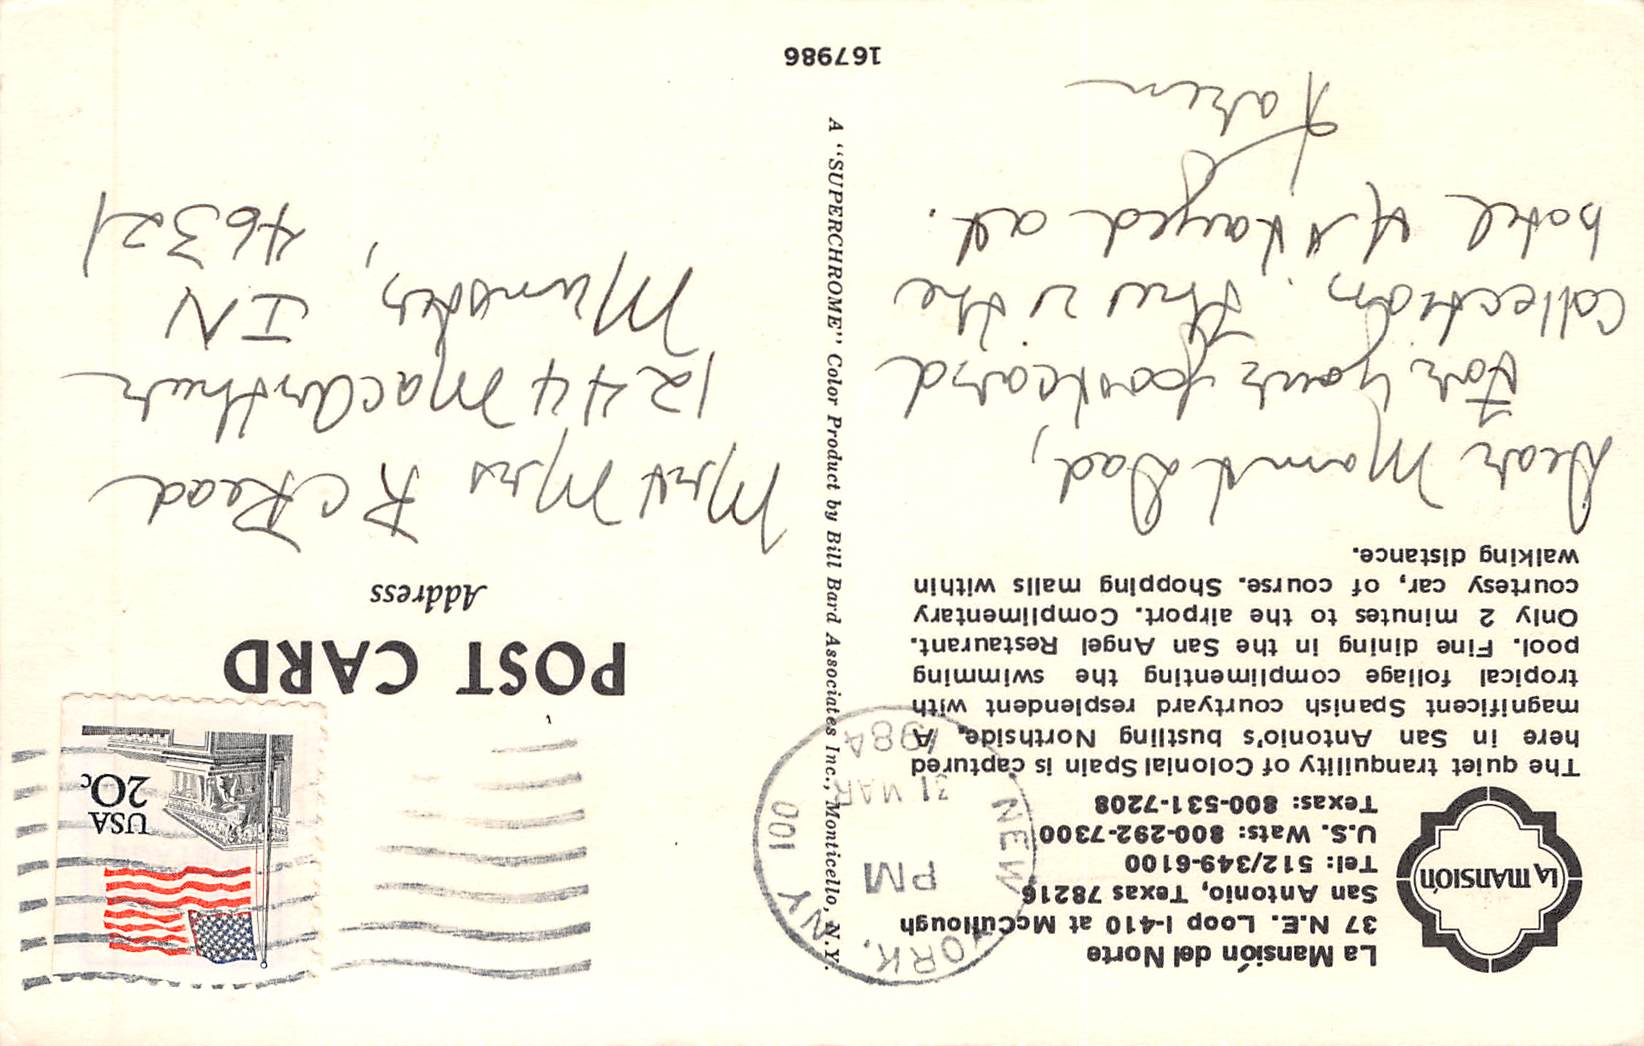 La Mansión
La Mansión del Norte
37 N.E. Loop I-410 at McCullough
San Antonio, Texas 78216
Tel: 512/349-6100
U.S. Wats: 800-292-7300
Texas: 800-531-7208
The quiet tranquility of Colonial Spain is captured
here in San Antonio's bustling Northside. A
magnificent Spanish courtyard resplendent with
tropical foliage complimenting the swimming
pool. Fine dining in the San Angel Restaurant.
Only 2 minutes to the airport. Complimentary
courtesy car, of course. Shopping malls within
walking distance.
Dear Mom & Dad,
For your postcard
collection. This is the
hotel I stayed at.
Karen
167986
A "SUPERCHROME" Color Product by Bill Bard Associates Inc., Monticello, N.Y.
NEW YORK, NY 100
PM
31 MAR
1984
USA
20c
POST CARD
Address
Mr & Mrs R C Read
1244 MacArthur
Munster, IN
46321